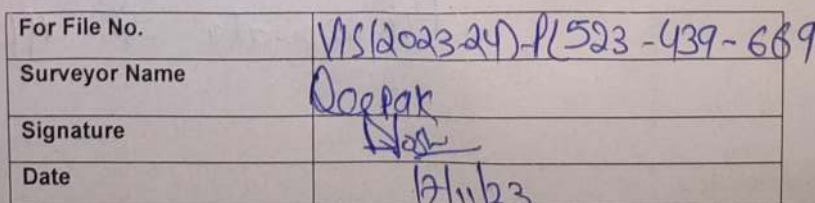 For File No. VIS(2023-24)-PL523-439-669
Surveyor Name Deepak
Signature
Date 17/11/23